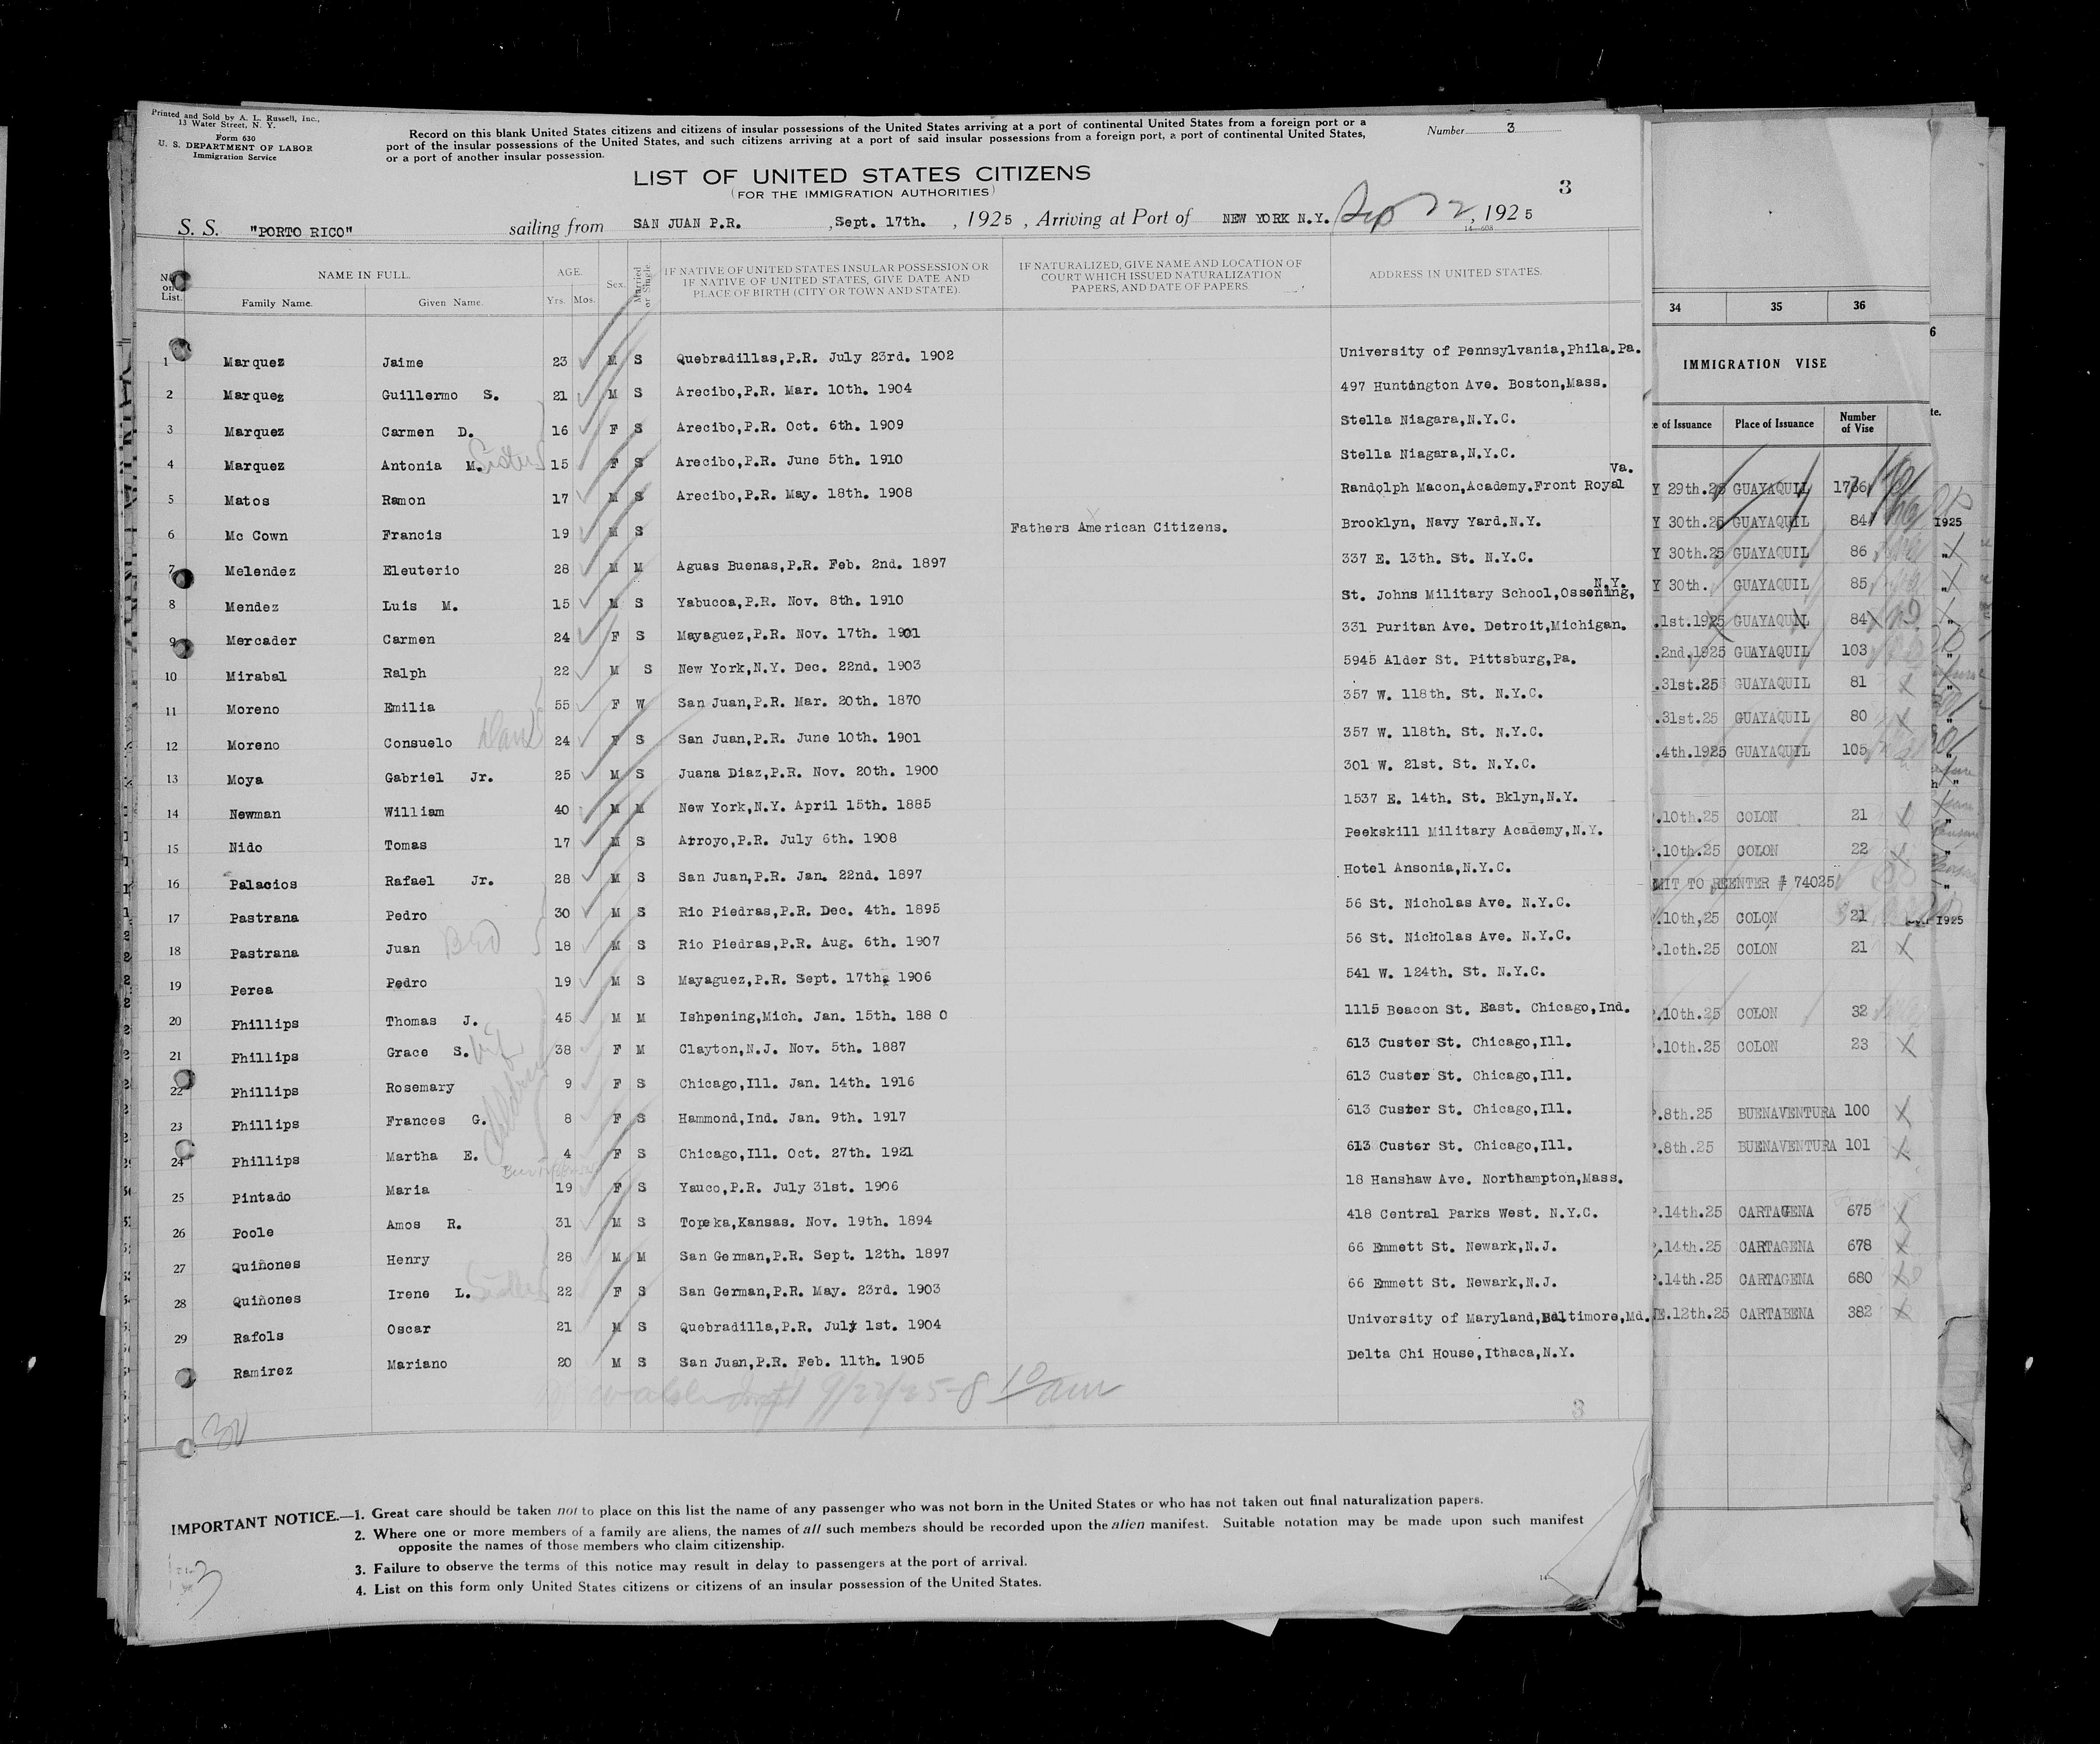 Printed and Sold by A. L. Russell, Inc.,
13 Water Street, N. Y.
Form 630
U. S. DEPARTMENT OF LABOR
Immigration Service
Record on this blank United States citizens and citizens of insular possessions of the United States arriving at a port of continental United States from a foreign port or a
port of the insular possessions of the United States, and such citizens arriving at a port of said insular possessions from a foreign port, a port of continental United States,
or a port of another insular possession.
Number 3
LIST OF UNITED STATES CITIZENS
(FOR THE IMMIGRATION AUTHORITIES)
3
S. S. "PORTO RICO" sailing from SAN JUAN P.R. ,Sept. 17th. , 1925 , Arriving at Port of NEW YORK N.Y. Sep 22, 1925
14—608
No. on List. NAME IN FULL. AGE. Sex. Married or Single. IF NATIVE OF UNITED STATES INSULAR POSSESSION OR IF NATIVE OF UNITED STATES, GIVE DATE AND PLACE OF BIRTH (CITY OR TOWN AND STATE). IF NATURALIZED, GIVE NAME AND LOCATION OF COURT WHICH ISSUED NATURALIZATION PAPERS, AND DATE OF PAPERS. ADDRESS IN UNITED STATES.
Family Name. Given Name. Yrs. Mos.
1 Marquez Jaime 23 M S Quebradillas,P.R. July 23rd. 1902 University of Pennsylvania,Phila.Pa.
2 Marquez Guillermo S. 21 M S Arecibo,P.R. Mar. 10th. 1904 497 Huntington Ave. Boston,Mass.
3 Marquez Carmen D. 16 F S Arecibo,P.R. Oct. 6th. 1909 Stella Niagara,N.Y.C.
4 Marquez Antonia M. Sister 15 F S Arecibo,P.R. June 5th. 1910 Stella Niagara,N.Y.C.
5 Matos Ramon 17 M S Arecibo,P.R. May. 18th. 1908 Randolph Macon,Academy.Front Royal Va.
6 Mc Cown Francis 19 M S Fathers American Citizens. Brooklyn, Navy Yard.N.Y.
7 Melendez Eleuterio 28 M M Aguas Buenas,P.R. Feb. 2nd. 1897 337 E. 13th. St. N.Y.C.
8 Mendez Luis M. 15 M S Yabucoa,P.R. Nov. 8th. 1910 St. Johns Military School,Ossening, N.Y.
9 Mercader Carmen 24 F S Mayaguez,P.R. Nov. 17th. 1901 331 Puritan Ave. Detroit,Michigan.
10 Mirabal Ralph 22 M S New York,N.Y. Dec. 22nd. 1903 5945 Alder St. Pittsburg,Pa.
11 Moreno Emilia 55 F W San Juan,P.R. Mar. 20th. 1870 357 W. 118th. St. N.Y.C.
12 Moreno Consuelo 24 F S San Juan,P.R. June 10th. 1901 357 W. 118th. St. N.Y.C.
13 Moya Gabriel Jr. 25 M S Juana Diaz,P.R. Nov. 20th. 1900 301 W. 21st. St. N.Y.C.
14 Newman William 40 M M New York,N.Y. April 15th. 1885 1537 E. 14th. St. Bklyn,N.Y.
15 Nido Tomas 17 M S Arroyo,P.R. July 6th. 1908 Peekskill Military Academy,N.Y.
16 Palacios Rafael Jr. 28 M S San Juan,P.R. Jan. 22nd. 1897 Hotel Ansonia,N.Y.C.
17 Pastrana Pedro 30 M S Rio Piedras,P.R. Dec. 4th. 1895 56 St. Nicholas Ave. N.Y.C.
18 Pastrana Juan Bro 18 M S Rio Piedras,P.R. Aug. 6th. 1907 56 St. Nicholas Ave. N.Y.C.
19 Perea Pedro 19 M S Mayaguez,P.R. Sept. 17th. 1906 541 W. 124th. St. N.Y.C.
20 Phillips Thomas J. 45 M M Ishpening,Mich. Jan. 15th. 188 0 1115 Beacon St. East. Chicago,Ind.
21 Phillips Grace S. wife 38 F M Clayton,N.J. Nov. 5th. 1887 613 Custer St. Chicago,Ill.
22 Phillips Rosemary 9 F S Chicago,Ill. Jan. 14th. 1916 613 Custer St. Chicago,Ill.
23 Phillips Frances G. children 8 F S Hammond,Ind. Jan. 9th. 1917 613 Custer St. Chicago,Ill.
24 Phillips Martha E. 4 F S Chicago,Ill. Oct. 27th. 1921 613 Custer St. Chicago,Ill.
25 Pintado Maria 19 F S Yauco,P.R. July 31st. 1906 18 Hanshaw Ave. Northampton,Mass.
26 Poole Amos R. 31 M S Topeka,Kansas. Nov. 19th. 1894 418 Central Parks West. N.Y.C.
27 Quiñones Henry 28 M M San German,P.R. Sept. 12th. 1897 66 Emmett St. Newark,N.J.
28 Quiñones Irene L. Sister 22 F S San German,P.R. May. 23rd. 1903 66 Emmett St. Newark,N.J.
29 Rafols Oscar 21 M S Quebradilla,P.R. July 1st. 1904 University of Maryland,Baltimore,Md.
Ramirez Mariano 20 M S San Juan,P.R. Feb. 11th. 1905 Delta Chi House,Ithaca,N.Y.
9/22/25 8 10 am
3
30
IMPORTANT NOTICE.—1. Great care should be taken not to place on this list the name of any passenger who was not born in the United States or who has not taken out final naturalization papers.
2. Where one or more members of a family are aliens, the names of all such members should be recorded upon the alien manifest. Suitable notation may be made upon such manifest
opposite the names of those members who claim citizenship.
3. Failure to observe the terms of this notice may result in delay to passengers at the port of arrival.
4. List on this form only United States citizens or citizens of an insular possession of the United States.
3
34 35 36
IMMIGRATION VISE
of Issuance Place of Issuance Number of Vise
29th.25 GUAYAQUIL 1766
30th.25 GUAYAQUIL 84 1925
30th.25 GUAYAQUIL 86
30th. GUAYAQUIL 85
.1st.1925 GUAYAQUIL 84
.2nd.1925 GUAYAQUIL 103
.31st.25 GUAYAQUIL 81
.31st.25 GUAYAQUIL 80
.4th.1925 GUAYAQUIL 105
.10th.25 COLON 21
.10th.25 COLON 22
MIT TO REENTER # 74025
.10th,25 COLON 21 1925
.10th.25 COLON 21
.10th.25 COLON 32
.10th.25 COLON 23
.8th.25 BUENAVENTURA 100
.8th.25 BUENAVENTURA 101
.14th.25 CARTAGENA 675
.14th.25 CARTAGENA 678
.14th.25 CARTAGENA 680
E.12th.25 CARTABENA 382